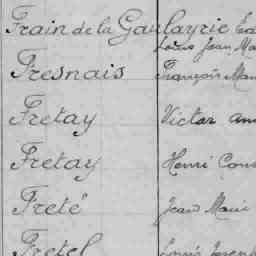 Frain de la Gaulayrie
Louis Jean
Fresnais François
Fretay Victor
Fretay Henri
Freté Jean Marie
Fretel Louis Joseph